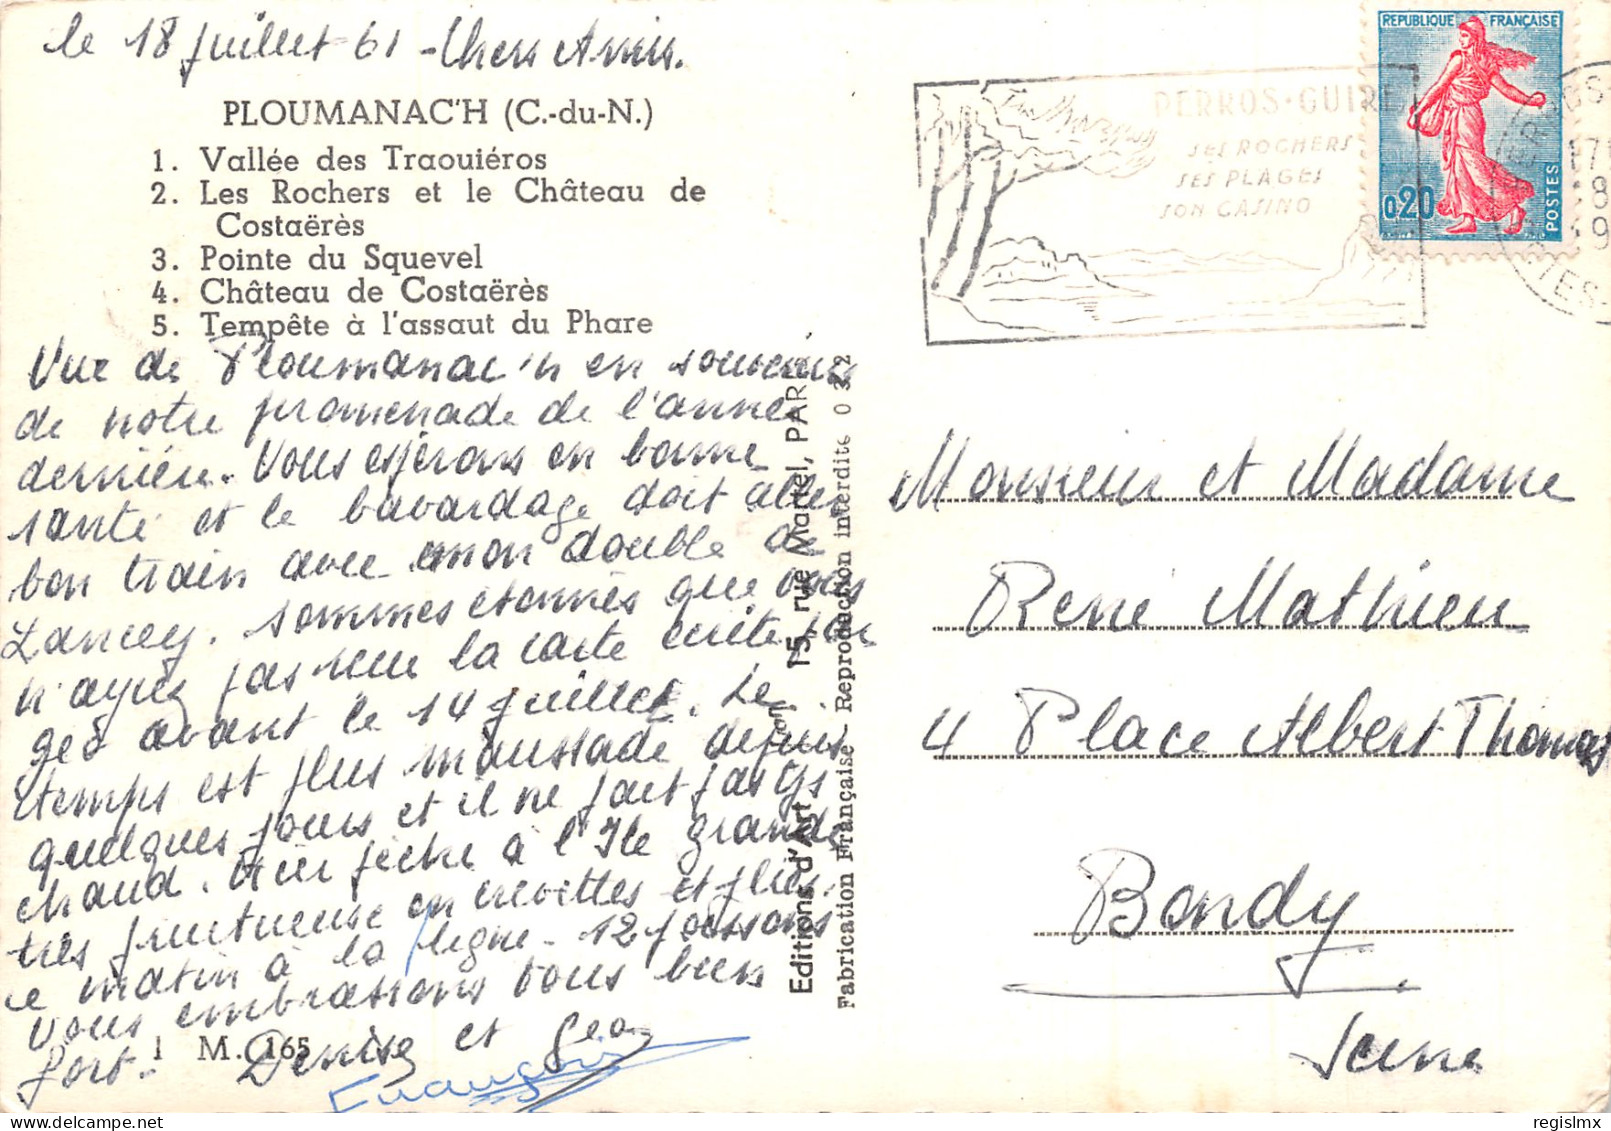 le 18 Juillet 61 - Chers Amis.
PLOUMANAC'H (C.-du-N.)
1. Vallée des Traouiéros
2. Les Rochers et le Château de
Costaërès
3. Pointe du Squevel
4. Château de Costaërès
5. Tempête à l'assaut du Phare
Vue de Ploumanac'h en souvenir
de notre promenade de l'année
dernière. Vous espérons en bonne
santé et le bavardage doit aller
bon train avec mon double de
Lancey. Sommes étonnés que vous
n'ayez pas reçu la carte écrite par
Géo avant le 14 juillet. Le
temps est plus maussade depuis
quelques jours et il ne fait pas très
chaud. Hier pêche à l'Ile grande
très fructueuse en crevettes et plies.
ce matin à la ligne - 12 poissons
Vous embrassons tous bien
fort. Denise et Geo
François
1 M. 165
Editions d'Art 15, rue Martel, PAR
Fabrication Française - Reproduction interdite 0 3 2
PERROS-GUIRE
SES ROCHERS
SES PLAGES
SON CASINO
REPUBLIQUE FRANÇAISE
0,20
POSTES
Monsieur et Madame
René Mathieu
4 Place Albert Thomas
Bondy
Seine
regislmx